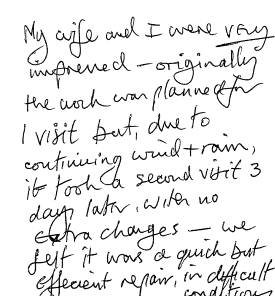 My wife and I were very
impressed - originally
the work was planned for
1 visit but, due to
continuing wind + rain,
it took a second visit 3
days later, with no
extra charges - we
felt it was a quick but
efficient repair, in difficult
conditions